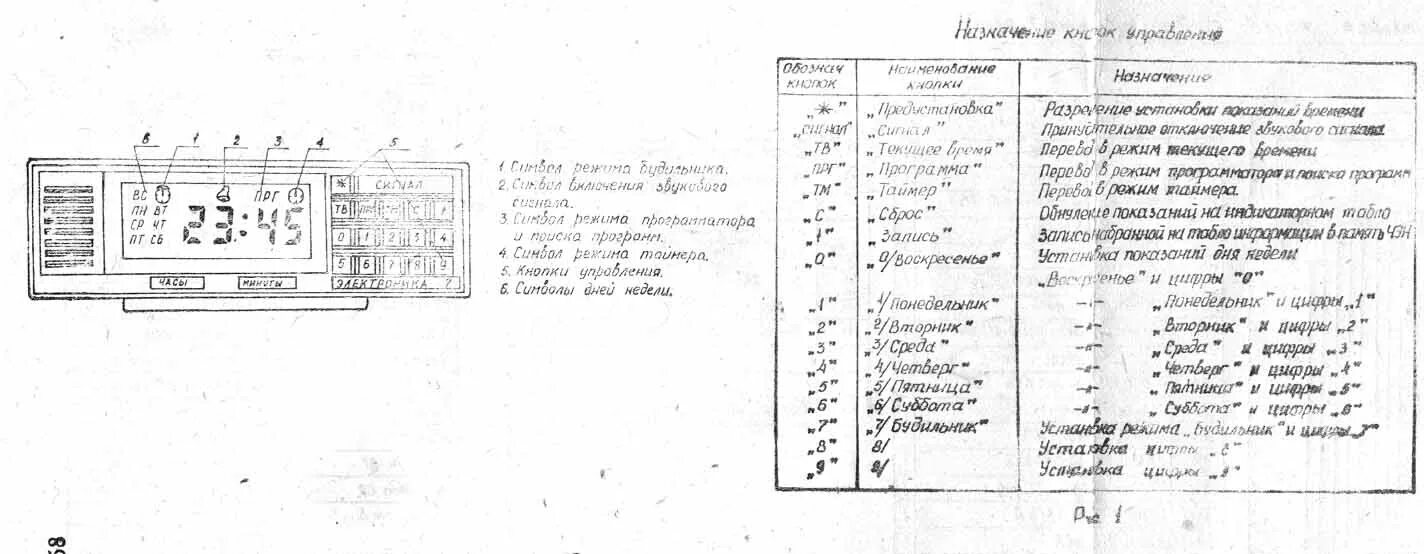 6 1 2 3 4 5
ВС ПРГ
ПН ВТ
СР ЧТ
ПТ СБ
23:45
* СИГНАЛ
ТВ С
0 1 2 3 4
5 6 7 8 9
ЧАСЫ МИНУТЫ ЭЛЕКТРОНИКА
1. Символ режима будильника.
2. Символ включения звукового
сигнала.
3. Символ режима программатора
и поиска программ.
4. Символ режима таймера.
5. Кнопки управления.
6. Символы дней недели.
68
Назначение кнопок управления
Обознач кнопок Наименование кнопки Назначение
„*" „Предустановка" Разрешение установки показаний времени
„СИГНАЛ" „Сигнал" Принудительное отключение звукового сигнала
„ТВ" „Текущее время" Перевод в режим текущего времени
„ПРГ" „Программа" Перевод в режим программатора и поиска программ
„ТМ" „Таймер" Перевод в режим таймера.
„С" „Сброс" Обнуление показаний на индикаторном табло
„Запись" Запись набранной на табло информации в память ЧЭН
„0" „0/Воскресенье" Установка показаний дня недели
„Воскресенье" и цифры "0"
„1" „1/Понедельник" –"– „Понедельник" и цифры „1"
„2" „2/Вторник" –"– „Вторник" и цифры „2"
„3" „3/Среда" –"– „Среда" и цифры „3"
„4" „4/Четверг" –"– „Четверг" и цифры „4"
„5" „5/Пятница" –"– „Пятница" и цифры „5"
„6" „6/Суббота" –"– „Суббота" и цифры „6"
„7" „7/Будильник" Установка режима „Будильник" и цифры „7"
„8" 8/ Установка цифры
„9" Установка цифры „9"
Рис 1